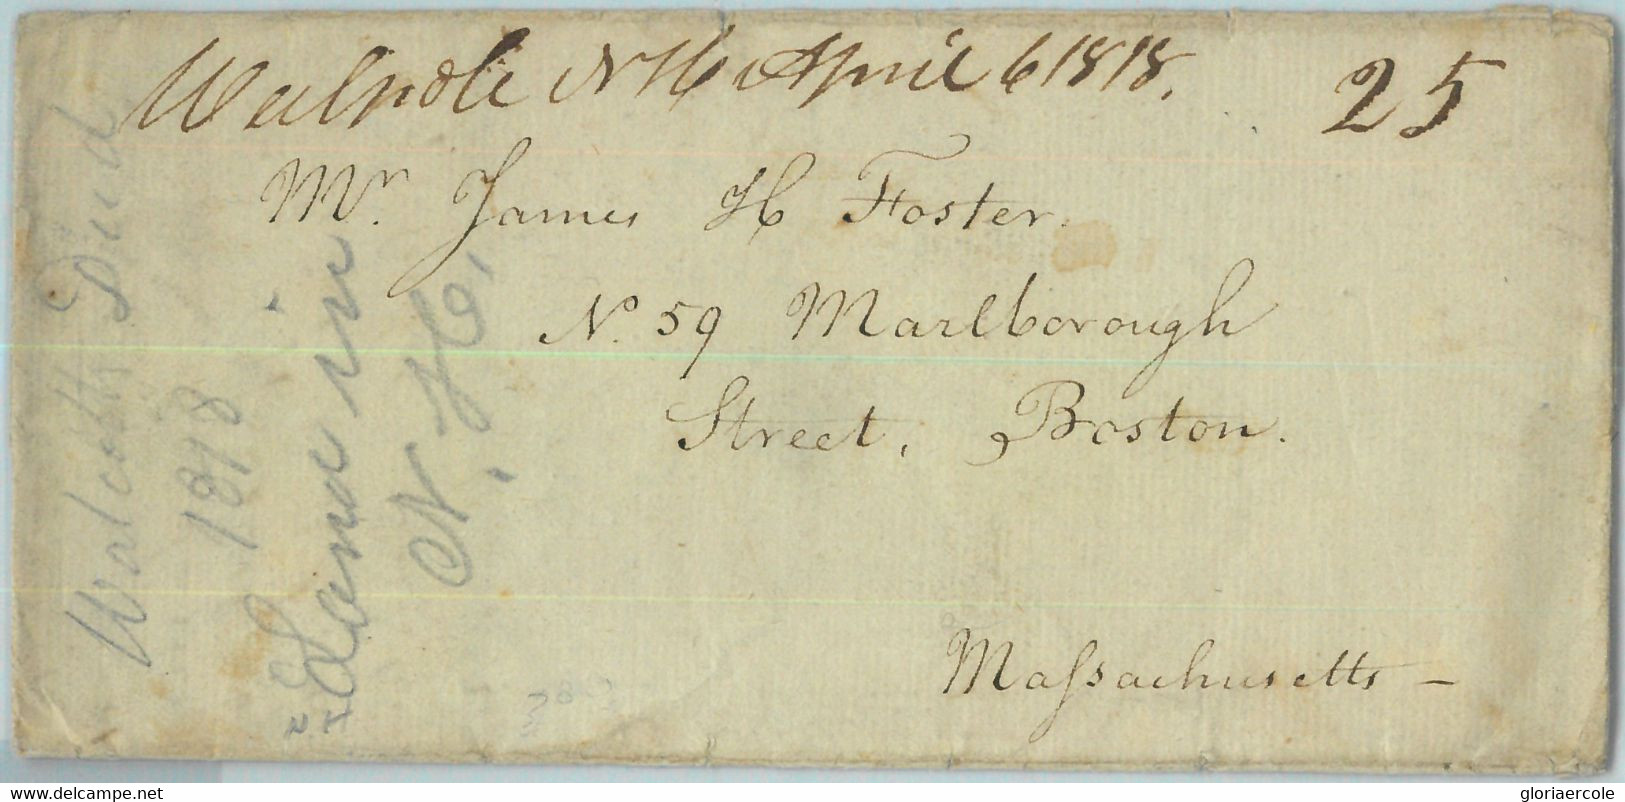 Walpole NH April 6 1818.
25
Mr. James H Foster.
No. 59 Marlborough
Street, Boston.
Maſsachusetts –
Walcott's Deed
1818
"Land in
N. H.
www.delcampe.net
gloriaercole